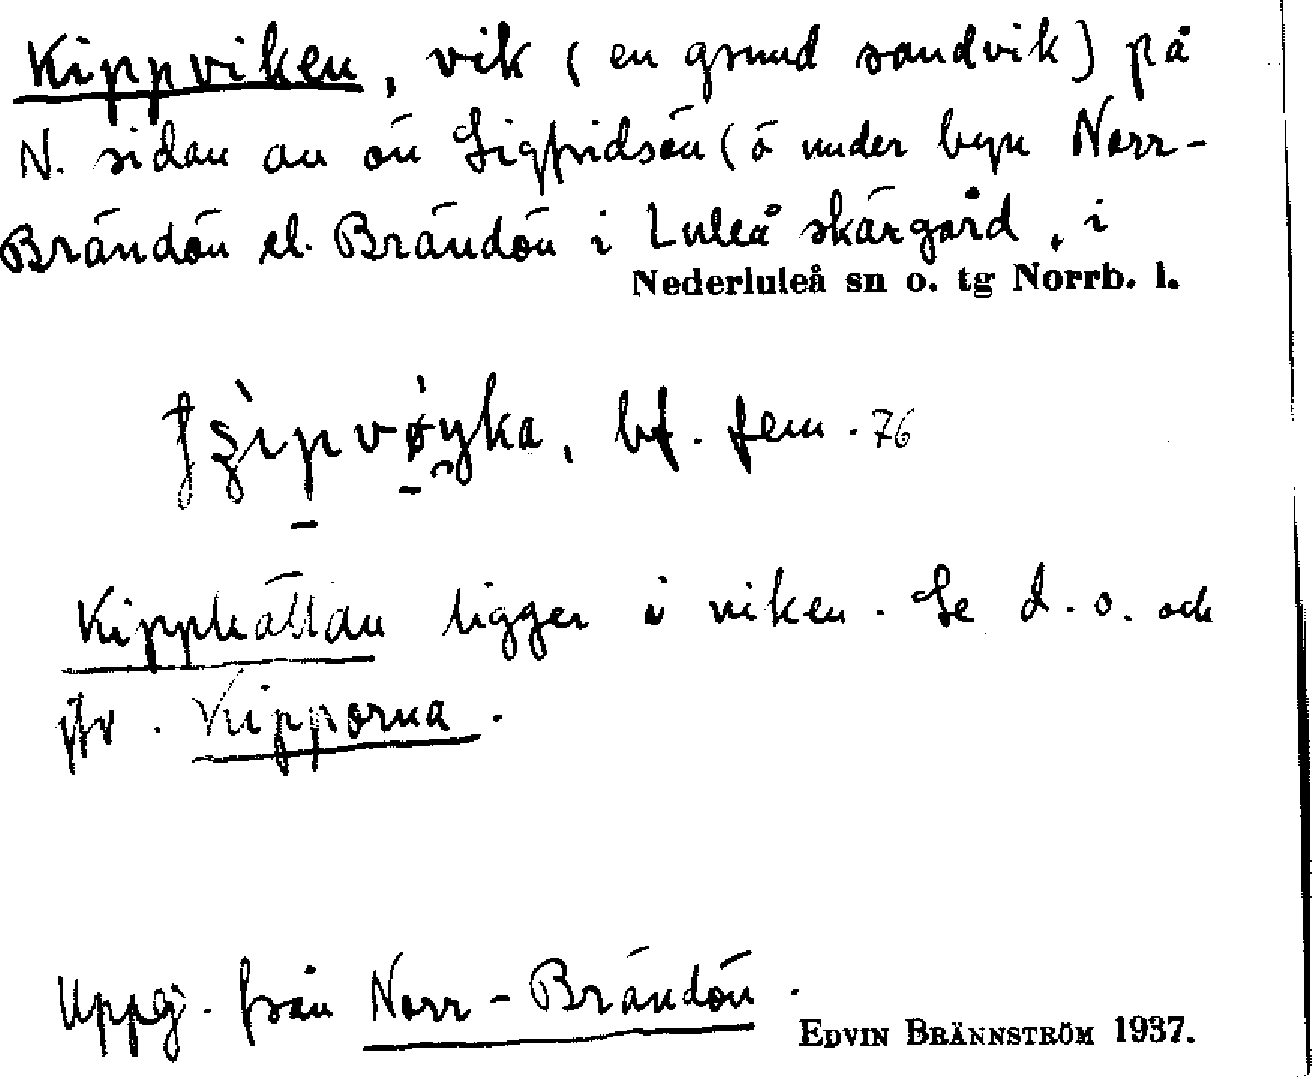 Kippviken, vik (en grund sandvik) på
N. sidan av ön Sigfridsön (ö under byn Norr-
Brändön el. Brändön i Luleå skärgård, i
Nederluleå sn o. tg Norrb. l.
bf. fem. 76
Kippkälldn ligger i viken. Se d. o. och
jfr. Kipporna.
Uppg. från Norr-Brändön.
EDVIN BRÄNNSTRÖM 1937.